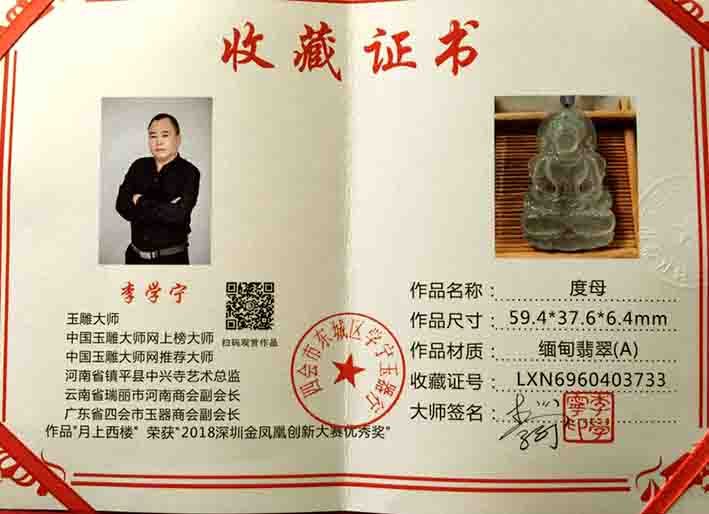 收藏证书
李学宁
玉雕大师
中国玉雕大师网上榜大师
扫码观赏作品
中国玉雕大师网推荐大师
河南省镇平县中兴寺艺术总监
云南省瑞丽市河南商会副会长
广东省四会市玉器商会副会长
作品"月上西楼" 荣获"2018深圳金凤凰创新大赛优秀奖"
四会市东城区学宁玉器行
作品名称: 度母
作品尺寸: 59.4*37.6*6.4mm
作品材质: 缅甸翡翠(A)
收藏证号: LXN6960403733
大师签名:
李學寧印